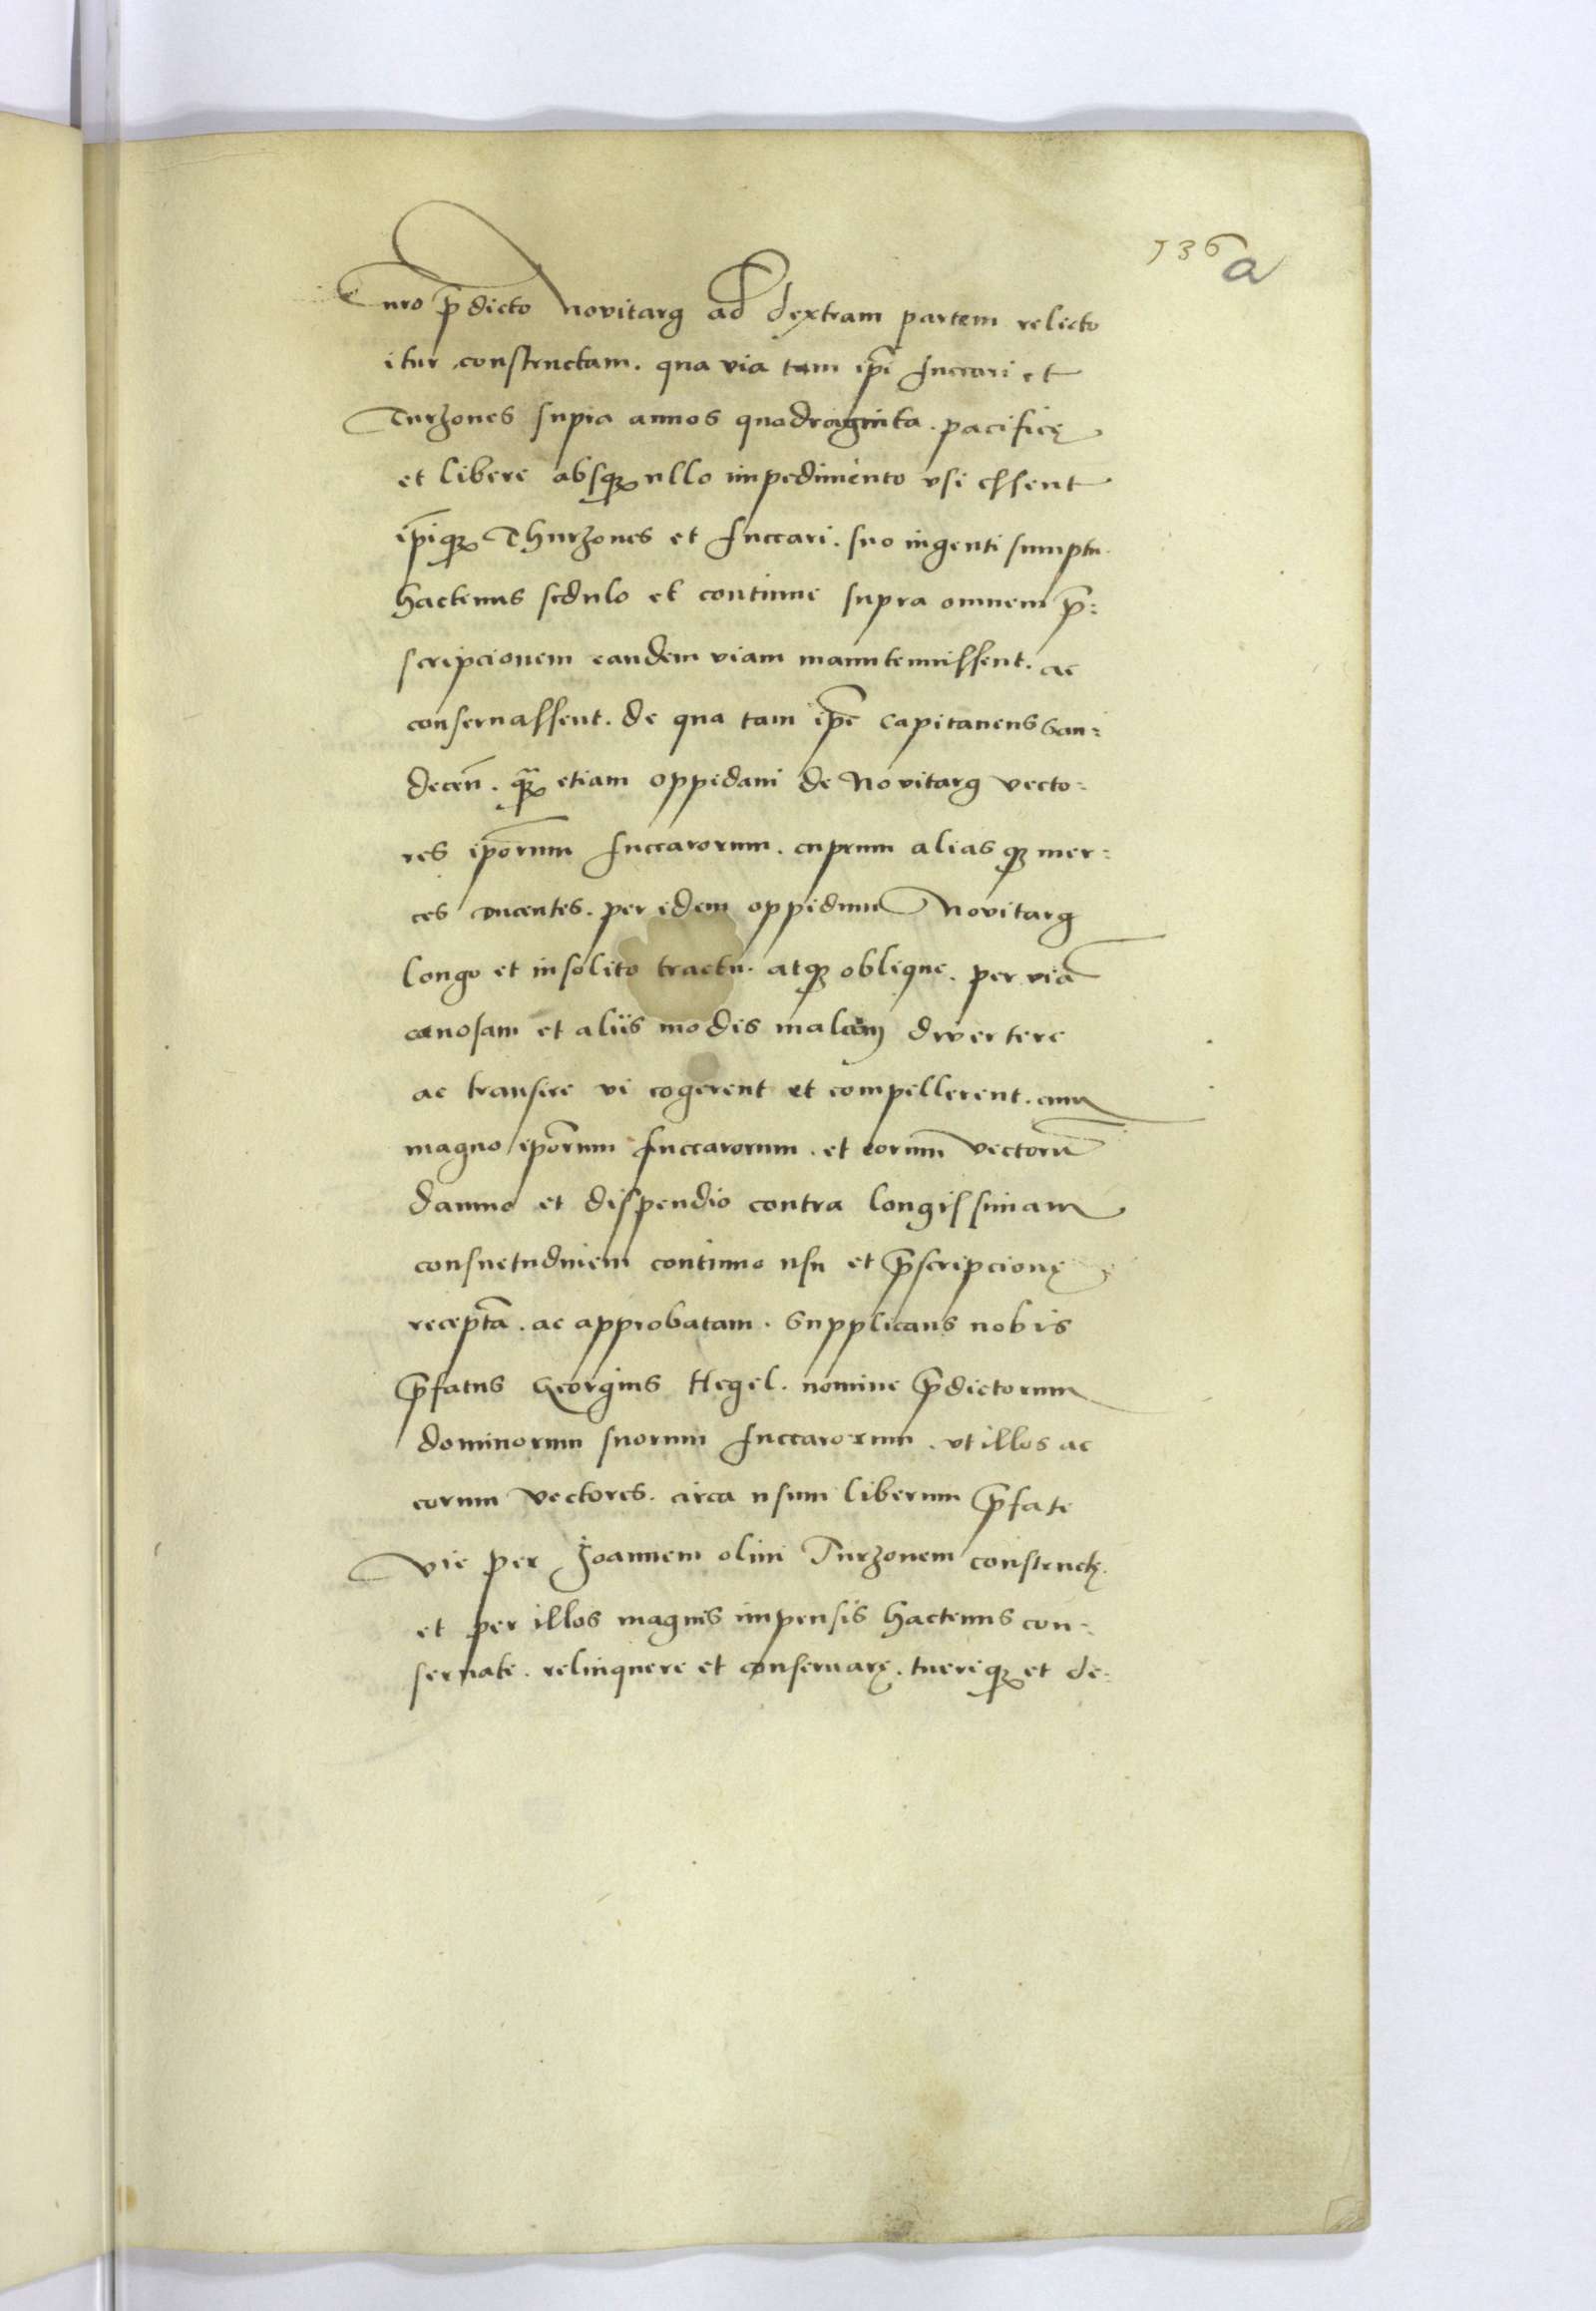 136 a
nro p̄dicto Novitarg ad dextram partem relicto
itur constructam. qua via tam ip̄i Fuccari et
Turzones supra annos quadraginta. pacificę
et libere absq₃ ullo impedimento vsi essent
ip̄iq₃ Thurzones et Fuccari. suo ingenti sumptu.
hactenus sedulo et continue supra omnem p̄:
scripcionem eandem viam manutenuissent. ac
conseruassent. de qua tam ip̄e Capitaneus San:
decen̄. q₃ etiam oppidani de Novitarg vecto:
res ip̄orum Fuccarorum. cuprum alias q₃ mer:
ces ducentes. per idem oppidum Novitarg
longo et insolito tractu. atq₃ oblique. per viā
cęnosam et aliis modis malam divertere
ac transire vi cogerent et compellerent. cum
magno ip̄orum Fuccarorum. et eorum vectorū
damno et dispendio contra longissimam
consuetudinem continuo usu et p̄scripcionę
receptā. ac approbatam. Supplicans nobis
p̄fatus Georgius Hegel. nomine p̄dictorum
dominorum suorum Fuccarorum. vt illos ac
eorum vectores. circa usum liberum p̄fate
vie per Joannem olim Turzonem constructę.
et per illos magnis impensis hactenus con:
seruate. relinquere et conseruarę. tuereq₃ et de: